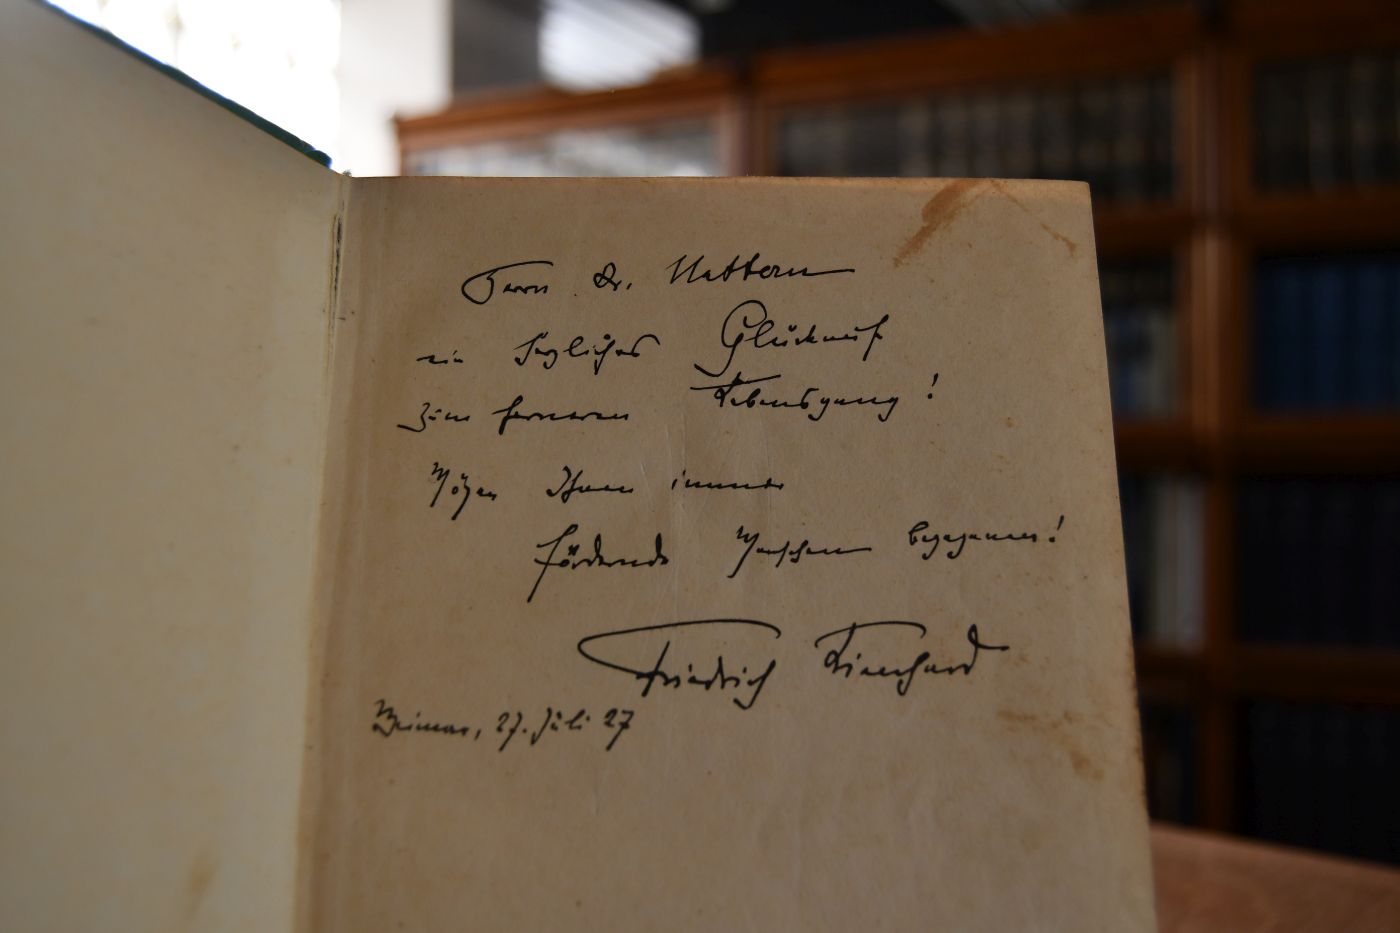 Herrn Dr. Mattern
ein herzliches Glückauf
zum ferneren Lebensgang!
Mögen Ihnen immer
fördernde Menschen begegnen!
Friedrich Lienhard
Weimar, 27. Juli 27